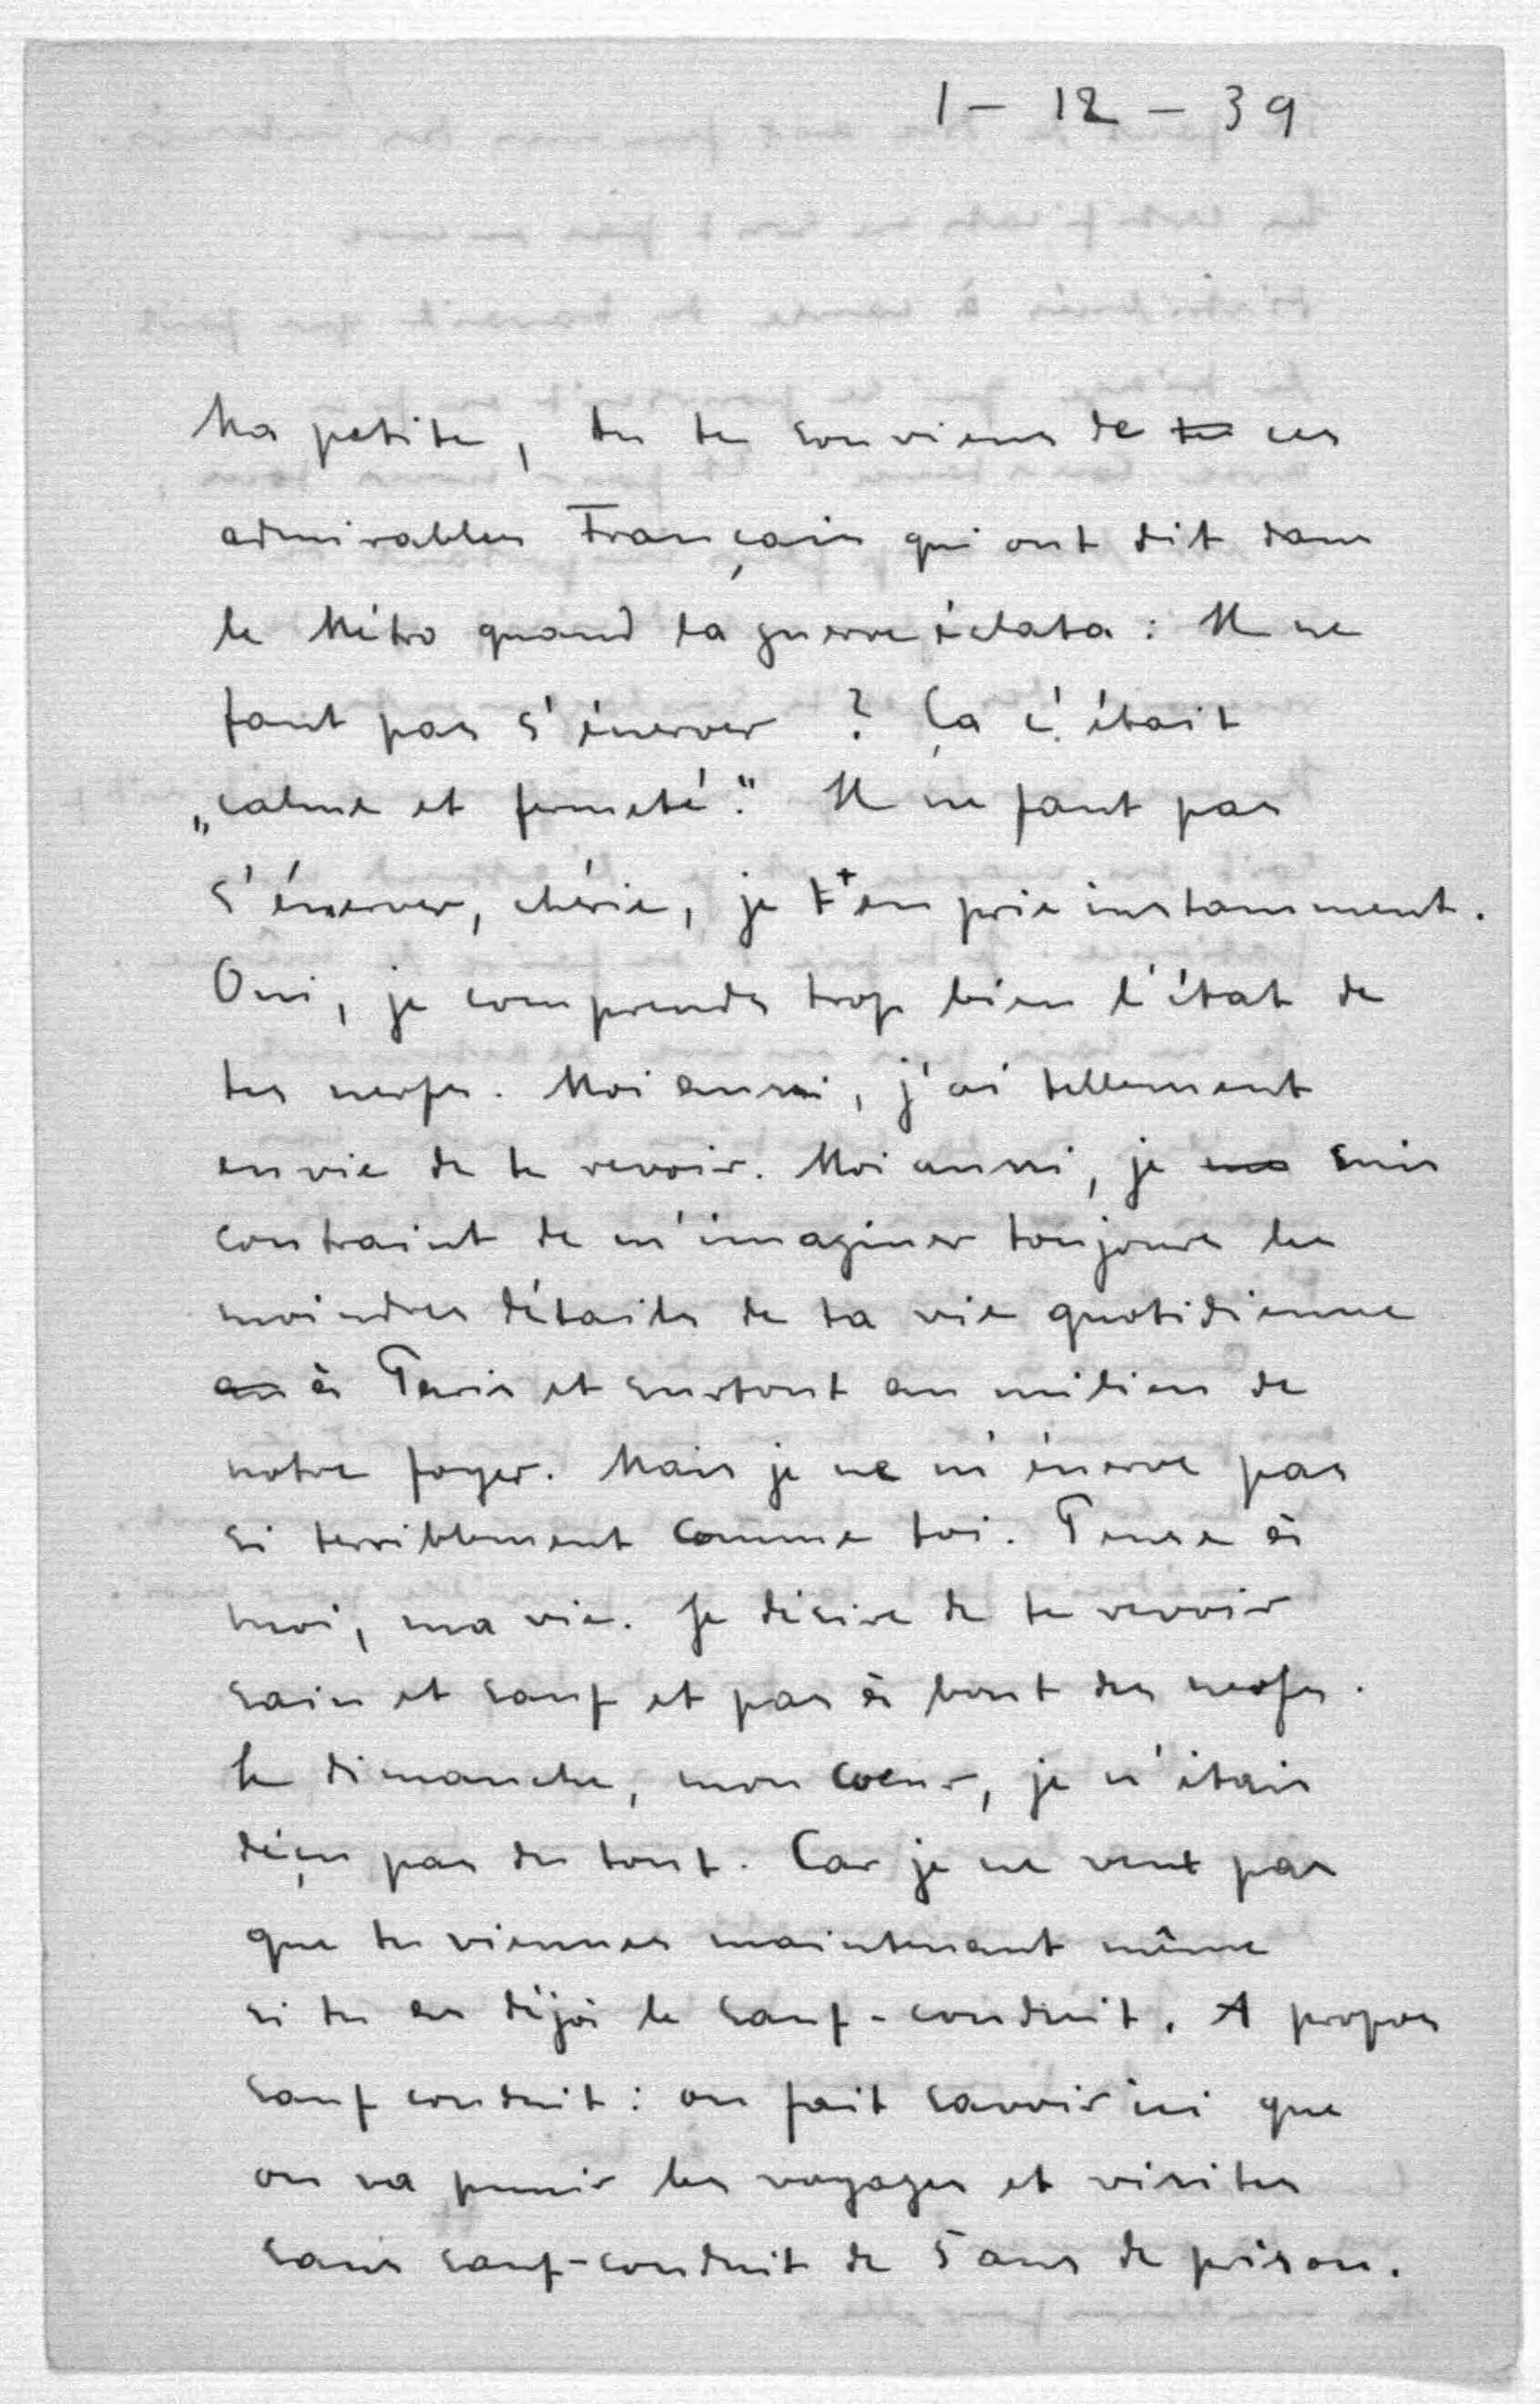 1 - 12 - 39
Ma petite, tu te souviens de ces
admirables Français qui ont dit dans
le Métro quand la guerre éclata : Il ne
faut pas s'énerver ? Ça c'était
„calme et fermeté." Il ne faut pas
s'énerver, chérie, je t'en prie instamment.
Oui, je comprends trop bien l'état de
tes nerfs. Moi aussi, j'ai tellement
envie de te revoir. Moi aussi, je suis
contraint de m'imaginer toujours les
moindres détails de ta vie quotidienne
à Paris et surtout au milieu de
notre foyer. Mais je ne m'énerve pas
si terriblement comme toi. Pense à
moi, ma vie. Je désire de te revoir
sain et sauf et pas à bout des nerfs.
Le dimanche, mon coeur, je n'étais
déçu pas du tout. Car je ne veut pas
que tu viennes maintenant même
si tu as déjà le sauf-conduit. A propos
sauf conduit : on fait savoir ici que
on va punir les voyages et visites
sans sauf-conduit de 5 ans de prison.